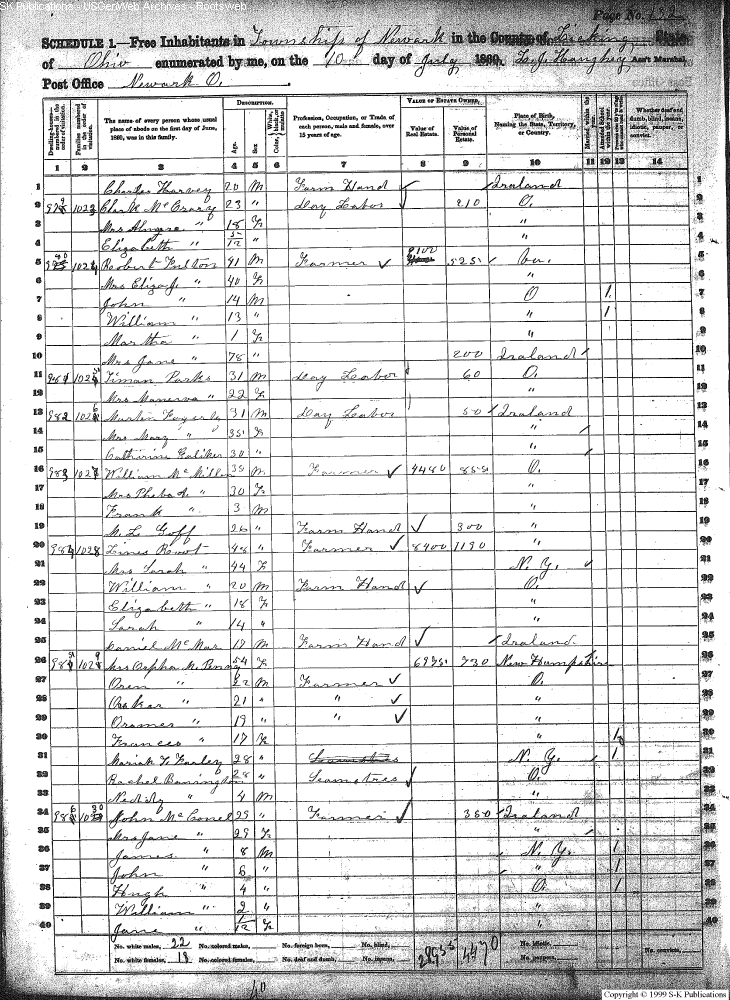 SK Publications - USGenWeb Archives - Rootsweb
Page No. 132
SCHEDULE 1.—Free Inhabitants in Township of Newark in the County of Licking State
of Ohio enumerated by me, on the 10 day of July 1860. Ass't Marshal.
Post Office Newark O.
Dwelling-houses— numbered in the order of visitation. Families numbered in the order of visitation. The name of every person whose usual place of abode on the first day of June, 1860, was in this family. DESCRIPTION. Age. Sex. Color, White, black, or mulatto. Profession, Occupation, or Trade of each person, male and female, over 15 years of age. VALUE OF ESTATE OWNED. Value of Real Estate. Value of Personal Estate. Place of Birth, Naming the State, Territory, or Country. Married within the year. Attended School within the year. Whether deaf and dumb, blind, insane, idiotic, pauper, or convict.
1 2 3 4 5 6 7 8 9 10 11 12 13 14
1 Charles Harvey 20 M Farm Hand Ireland 1
2 1023 Clark McCrary 23 " Day Labor 210 O. 2
3 Mrs " 18 F " 3
4 Elizabeth " 5/12 " " 4
5 1024 Robert Fulton 41 M Farmer 525 5
6 Mrs Eliza J. " 40 F " 6
7 John " 14 M O 1 7
8 William " 13 " " 1 8
9 Martha " 1 F " 9
10 Mrs Jane " 78 " 200 Ireland 10
11 981 1025 Timan Parks 31 M Day Labor 60 O. 11
12 Mrs Manerva " 22 F " 12
13 982 1026 Martin 31 M Day Labor 50 Ireland 13
14 Mrs Mary " 35 F " 14
15 Catherine 30 " " 15
16 983 1027 William McMillen 35 M Farmer 4480 855 O. 16
17 Mrs Phebe A. " 30 F " 17
18 Frank " 3 M " 18
19 M. L. Goff 26 " Farm Hand 300 " 19
20 984 1028 Root 48 " Farmer 8400 1190 " 20
21 Mrs Sarah " 44 F N. Y. 21
22 William " 20 M Farm Hand O. 22
23 Elizabeth " 18 F " 23
24 Sarah " 14 " " 24
25 Daniel McMar 17 M Farm Hand Ireland 25
26 985 1029 Mrs Orpha M. 54 F 6975 730 New Hampshire 26
27 Oren " 22 M Farmer O. 27
28 Oscar " 21 " " " 28
29 " 19 " " " 29
30 Frances " 17 F " 1 30
31 Mariah F. Farley 28 " Seamstres N. Y. 1 31
32 Rachel 28 " Seamstres O. 32
33 " 4 M " 33
34 986 1030 John McConel 29 " Farmer 350 Ireland 34
35 Mrs Jane " 29 F " 35
36 James " 8 M N. Y. 1 36
37 John " 6 " " 1 37
38 Hugh " 4 " O. 1 38
39 William " 2 " " 39
40 Jane " 1/12 F " 40
No. white males, 22 No. colored males, No. foreign born, No. blind, 28955 4470 No. idiotic, No. convicts,
No. white females, 18 No. colored females, No. deaf and dumb, No. insane, No. paupers,
40
Copyright © 1999 S-K Publications